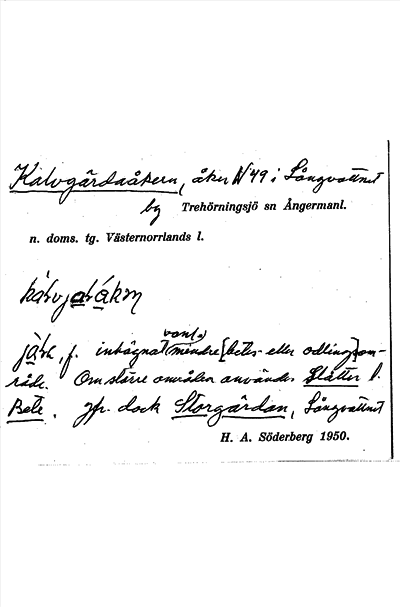 Kalvgårdaåkern, åker N 49 i Långvattnet
by Trehörningsjö sn Ångermanl.
n. doms. tg. Västernorrlands l.
jàḷı, f. inhägnat vanl(.) mindre [betes- eller odlings]om-
råde. Om större områden användes Slåtter l.
Bete. Jfr. dock Storgårdan, Långvattnet
H. A. Söderberg 1950.